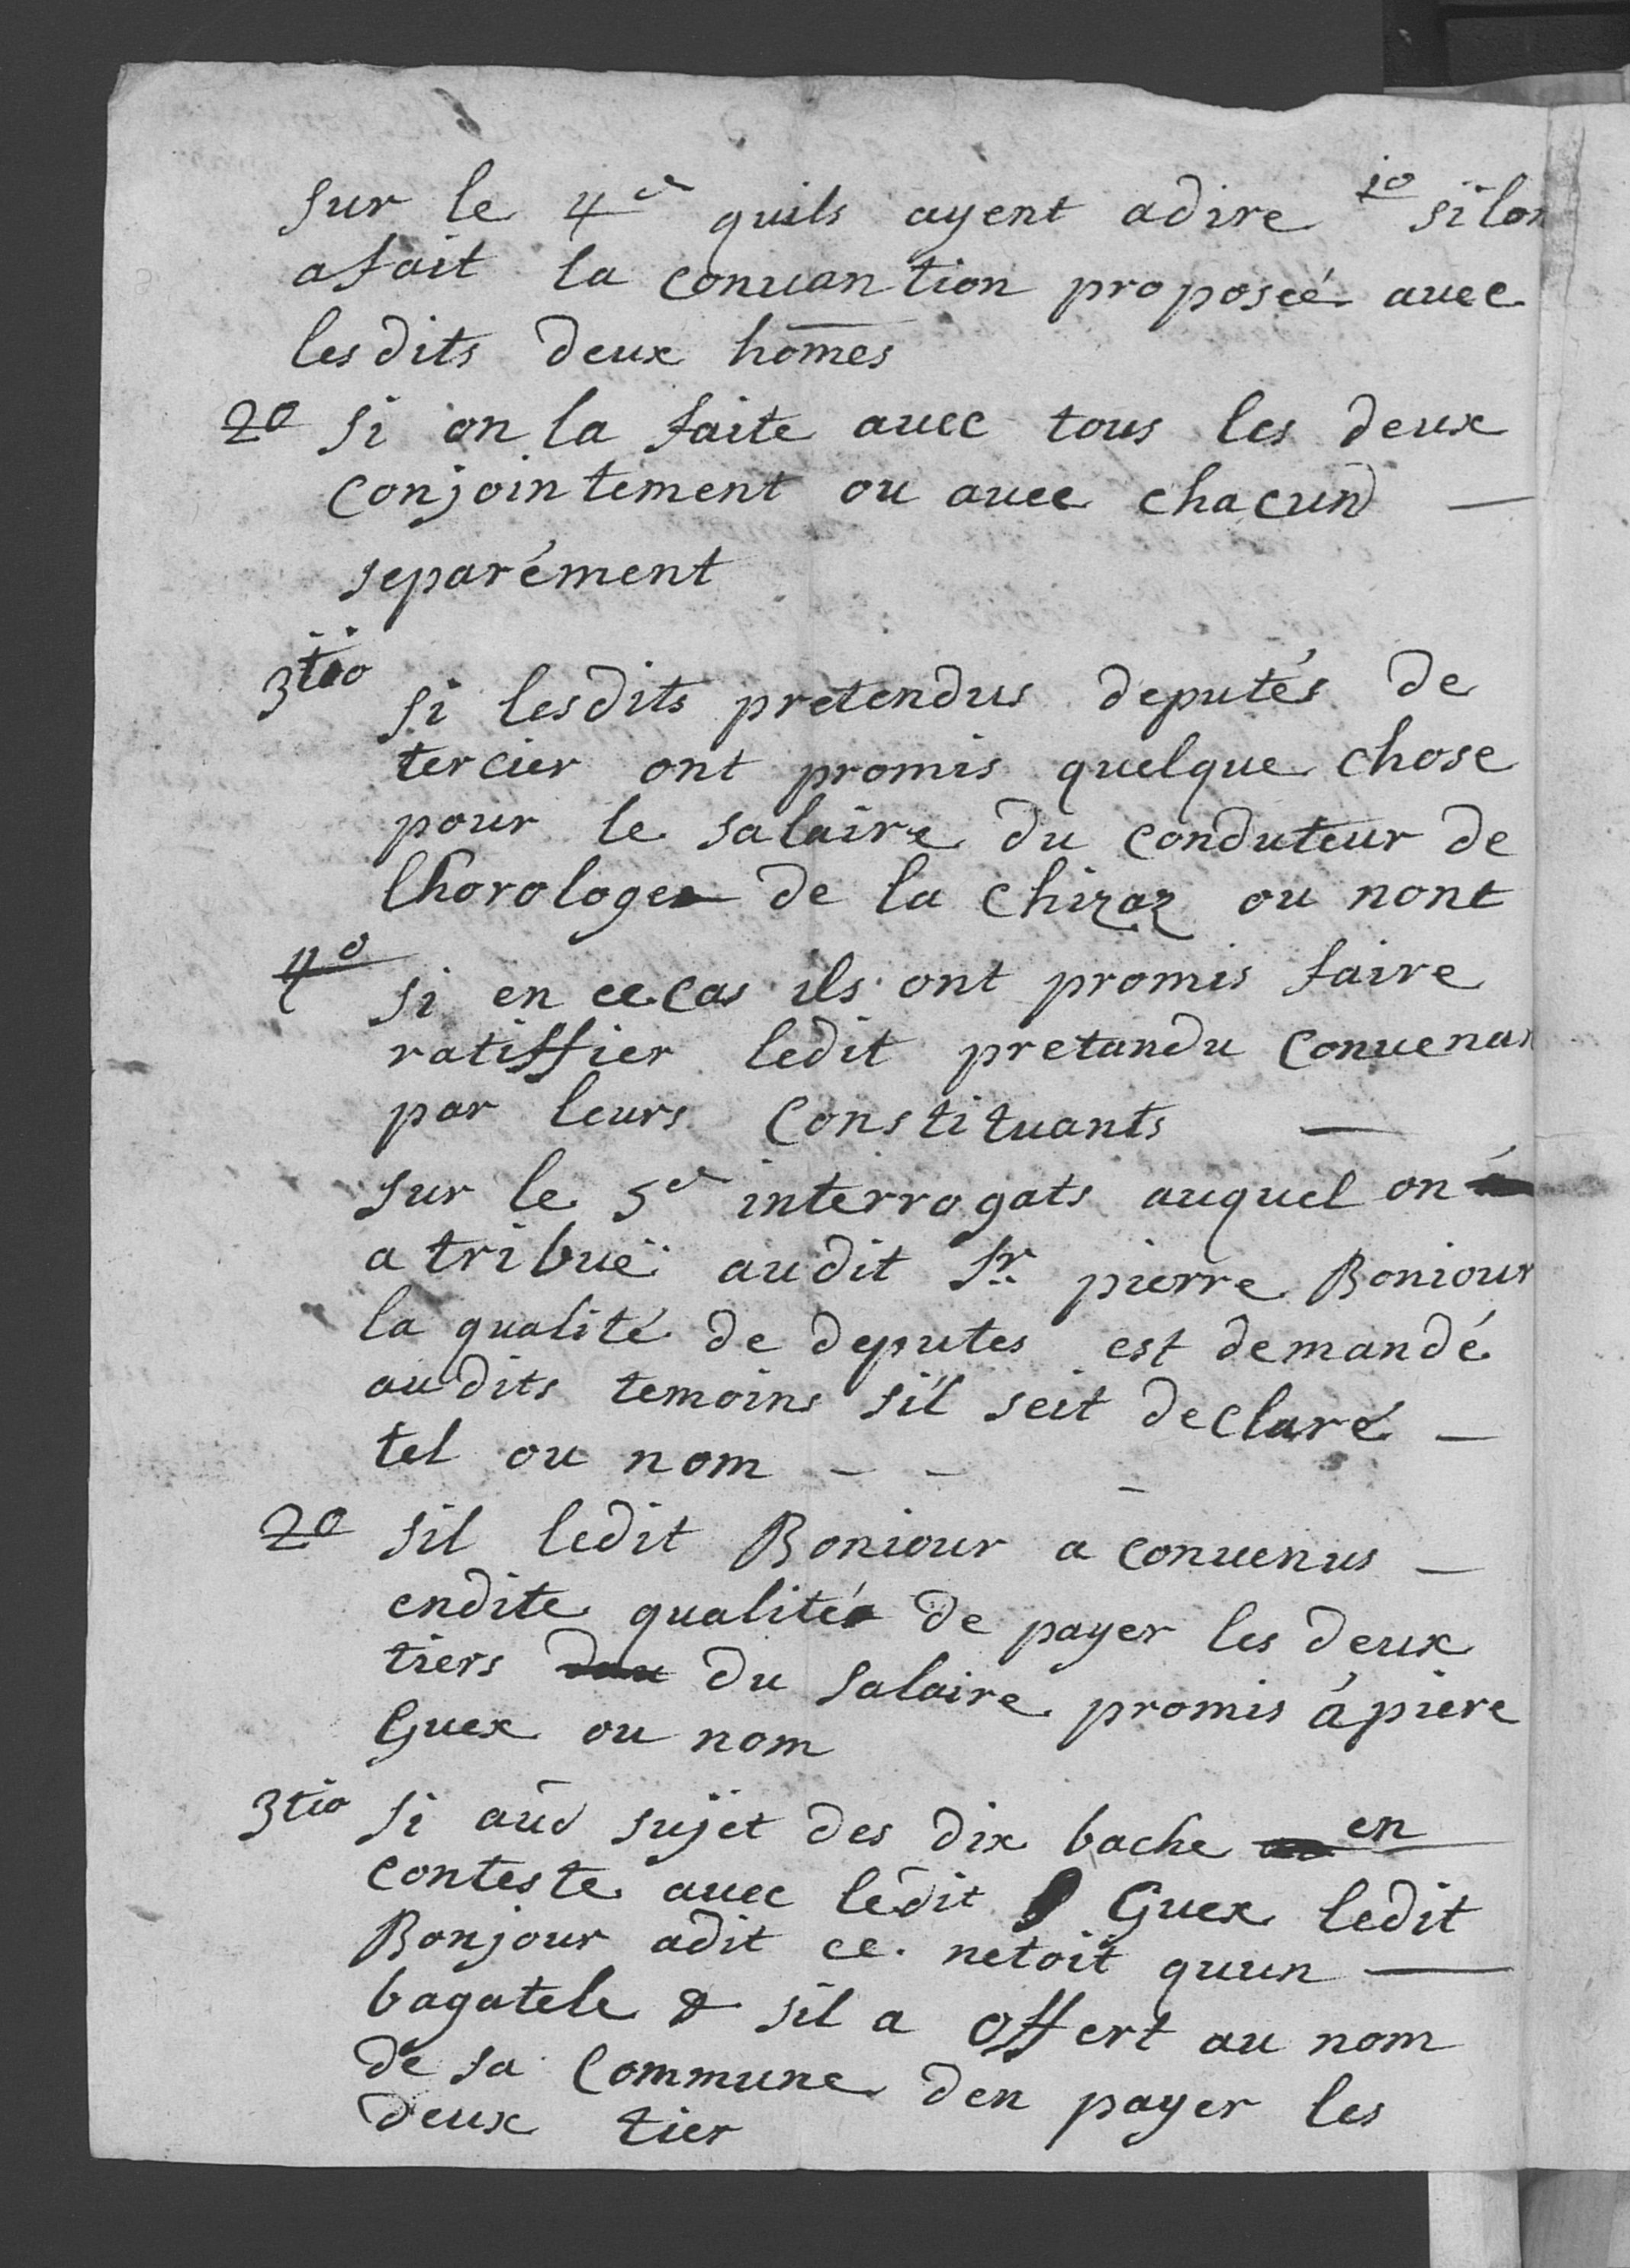 sur le 4e quils ayent adire 1o silon
afait la conuantion proposeé auec
lesdits deux hom̄es
2o si on la faite auec tous les deux
conjointement ou auec chacun —
separément
3tio si lesdits pretendus deputés de
tercier ont promis quelque chose
pour le salaire du conduteur de
lhorologe de la chizaz ou nont
4o si en ce cas ils ont promis faire
ratiffier ledit pretandu conuenan
par leurs constituants —
sur le 5e interrogats auquel on
atribuë audit Sr. pierre Boniour
la qualité de deputes est demandé
audits temoins sil seit declaré —
tel ou nom — — —
2o sil ledit Boniour a conuenus —
endite qualité de payer les deux
tiers du salaire promis á piere
Guex ou nom
3tio si aud sujet des dix bache en
conteste auec ledit Guex ledit
Bonjour adit ce netoit quun —
bagatele & sil a offert au nom
de sa Commune den payer les
deux tier